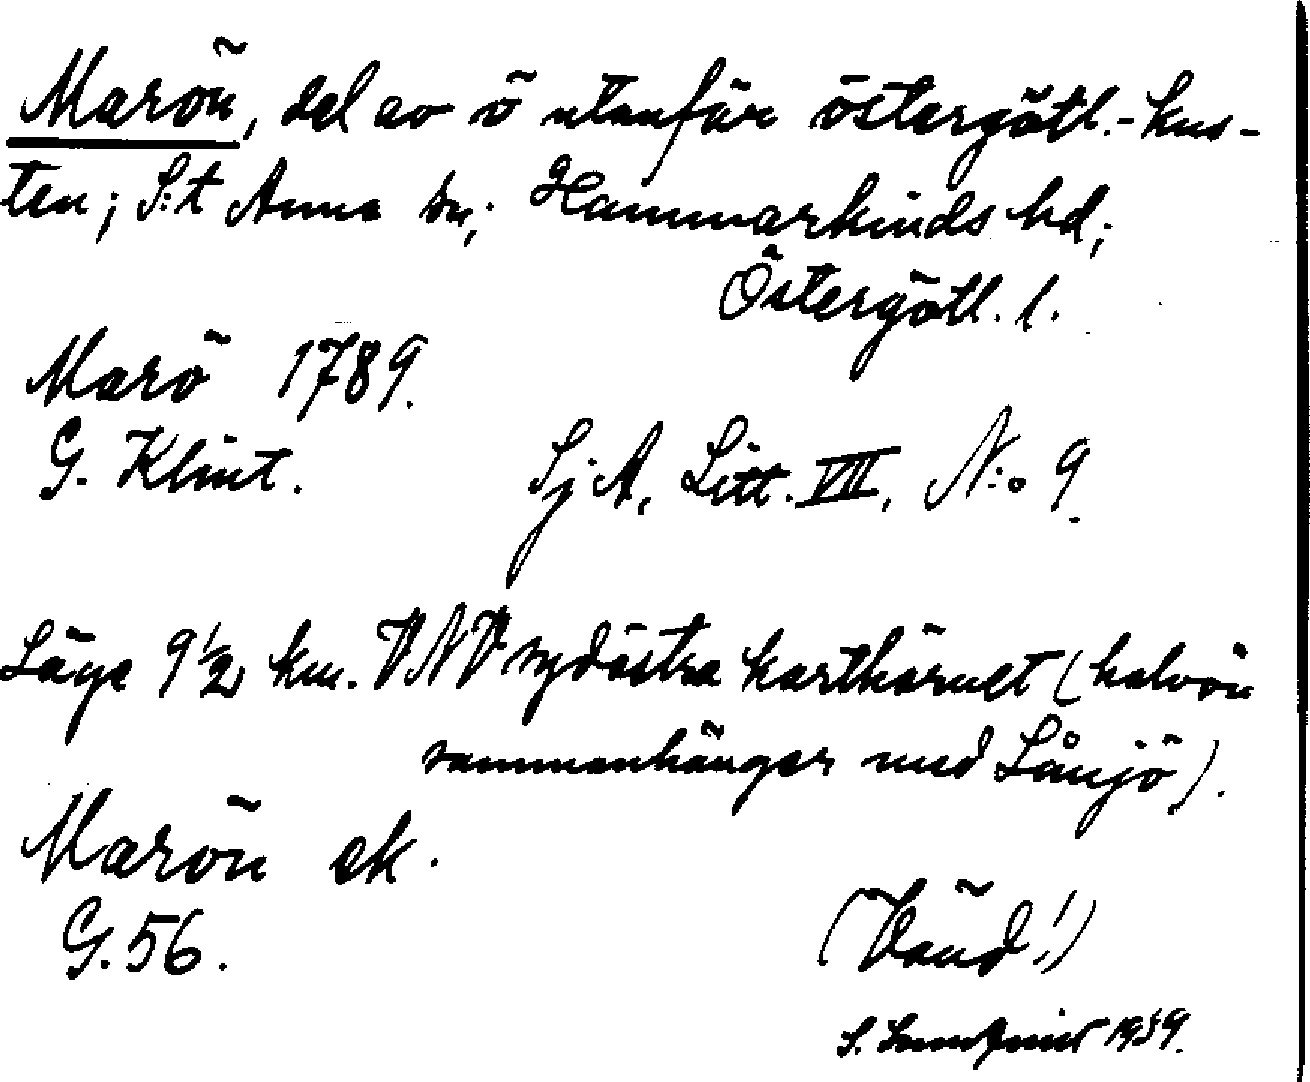 Marön, del av ö utanför östergötl.-kus-
ten; S:t Anna sn; Hammarkinds hd;
Östergötl. l.
Marö 1789.
G. Klint. Sj A, Litt. VII, N:o 9.
Läge 9 1/2 km. VNV sydöstra karthörnet (halvön
sammanhänger med Lånjö).
Marön ek.
G. 56.
(Vänd!)
S. 1939.